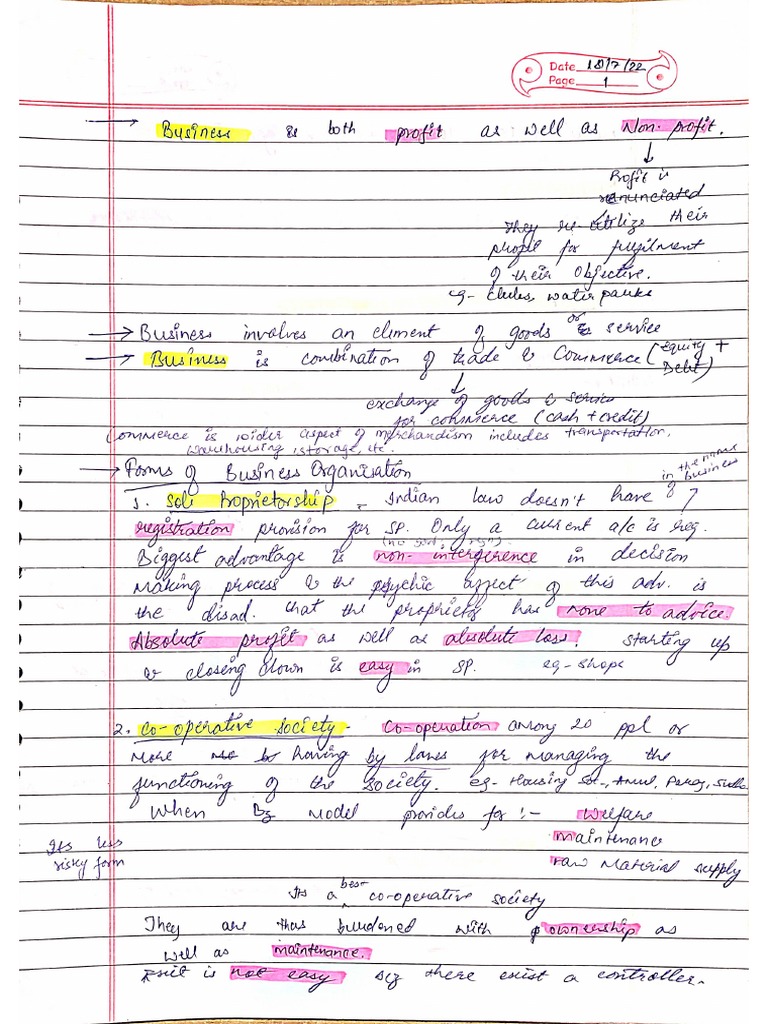 Date 18/7/22
Page 1
→ Business is both profit as well as Non-profit.
↓
Profit is
renunciated
They re-utilize their
profit for fulfilment
of their objective.
eg- Clubs, water parks
→ Business involves an eliment of goods or service
→ Business is combination of trade & Commerce (Equity + Debt)
↓
exchange of goods & service
for commerce (cash + credit)
Commerce is wider aspect of merchandism includes transportation,
warehousing, storage, etc.
→ Forms of Business Organisation
1. Sole Proprietorship - Indian law doesn't have
in the name of business
registration provision for SP. Only a current a/c is req.
Biggest advantage is non-interference in decision
making process & the psychic affect of this adv. is
the disad. that the proprietor has none to advice.
Absolute profit as well as absolute loss. starting up
& closing down is easy in SP. eg- shops
2. Co-operative society - Co-operation among 20 ppl or
more having by laws for managing the
functioning of the society. eg- Housing Soc., Amul, Parag,
When Bz model provides for :- welfare
maintenance
raw material supply
Its less
risky form
Its a best co-operative society
They are thus burdened with ownership as
well as maintenance.
Exit is not easy there exist a controller.